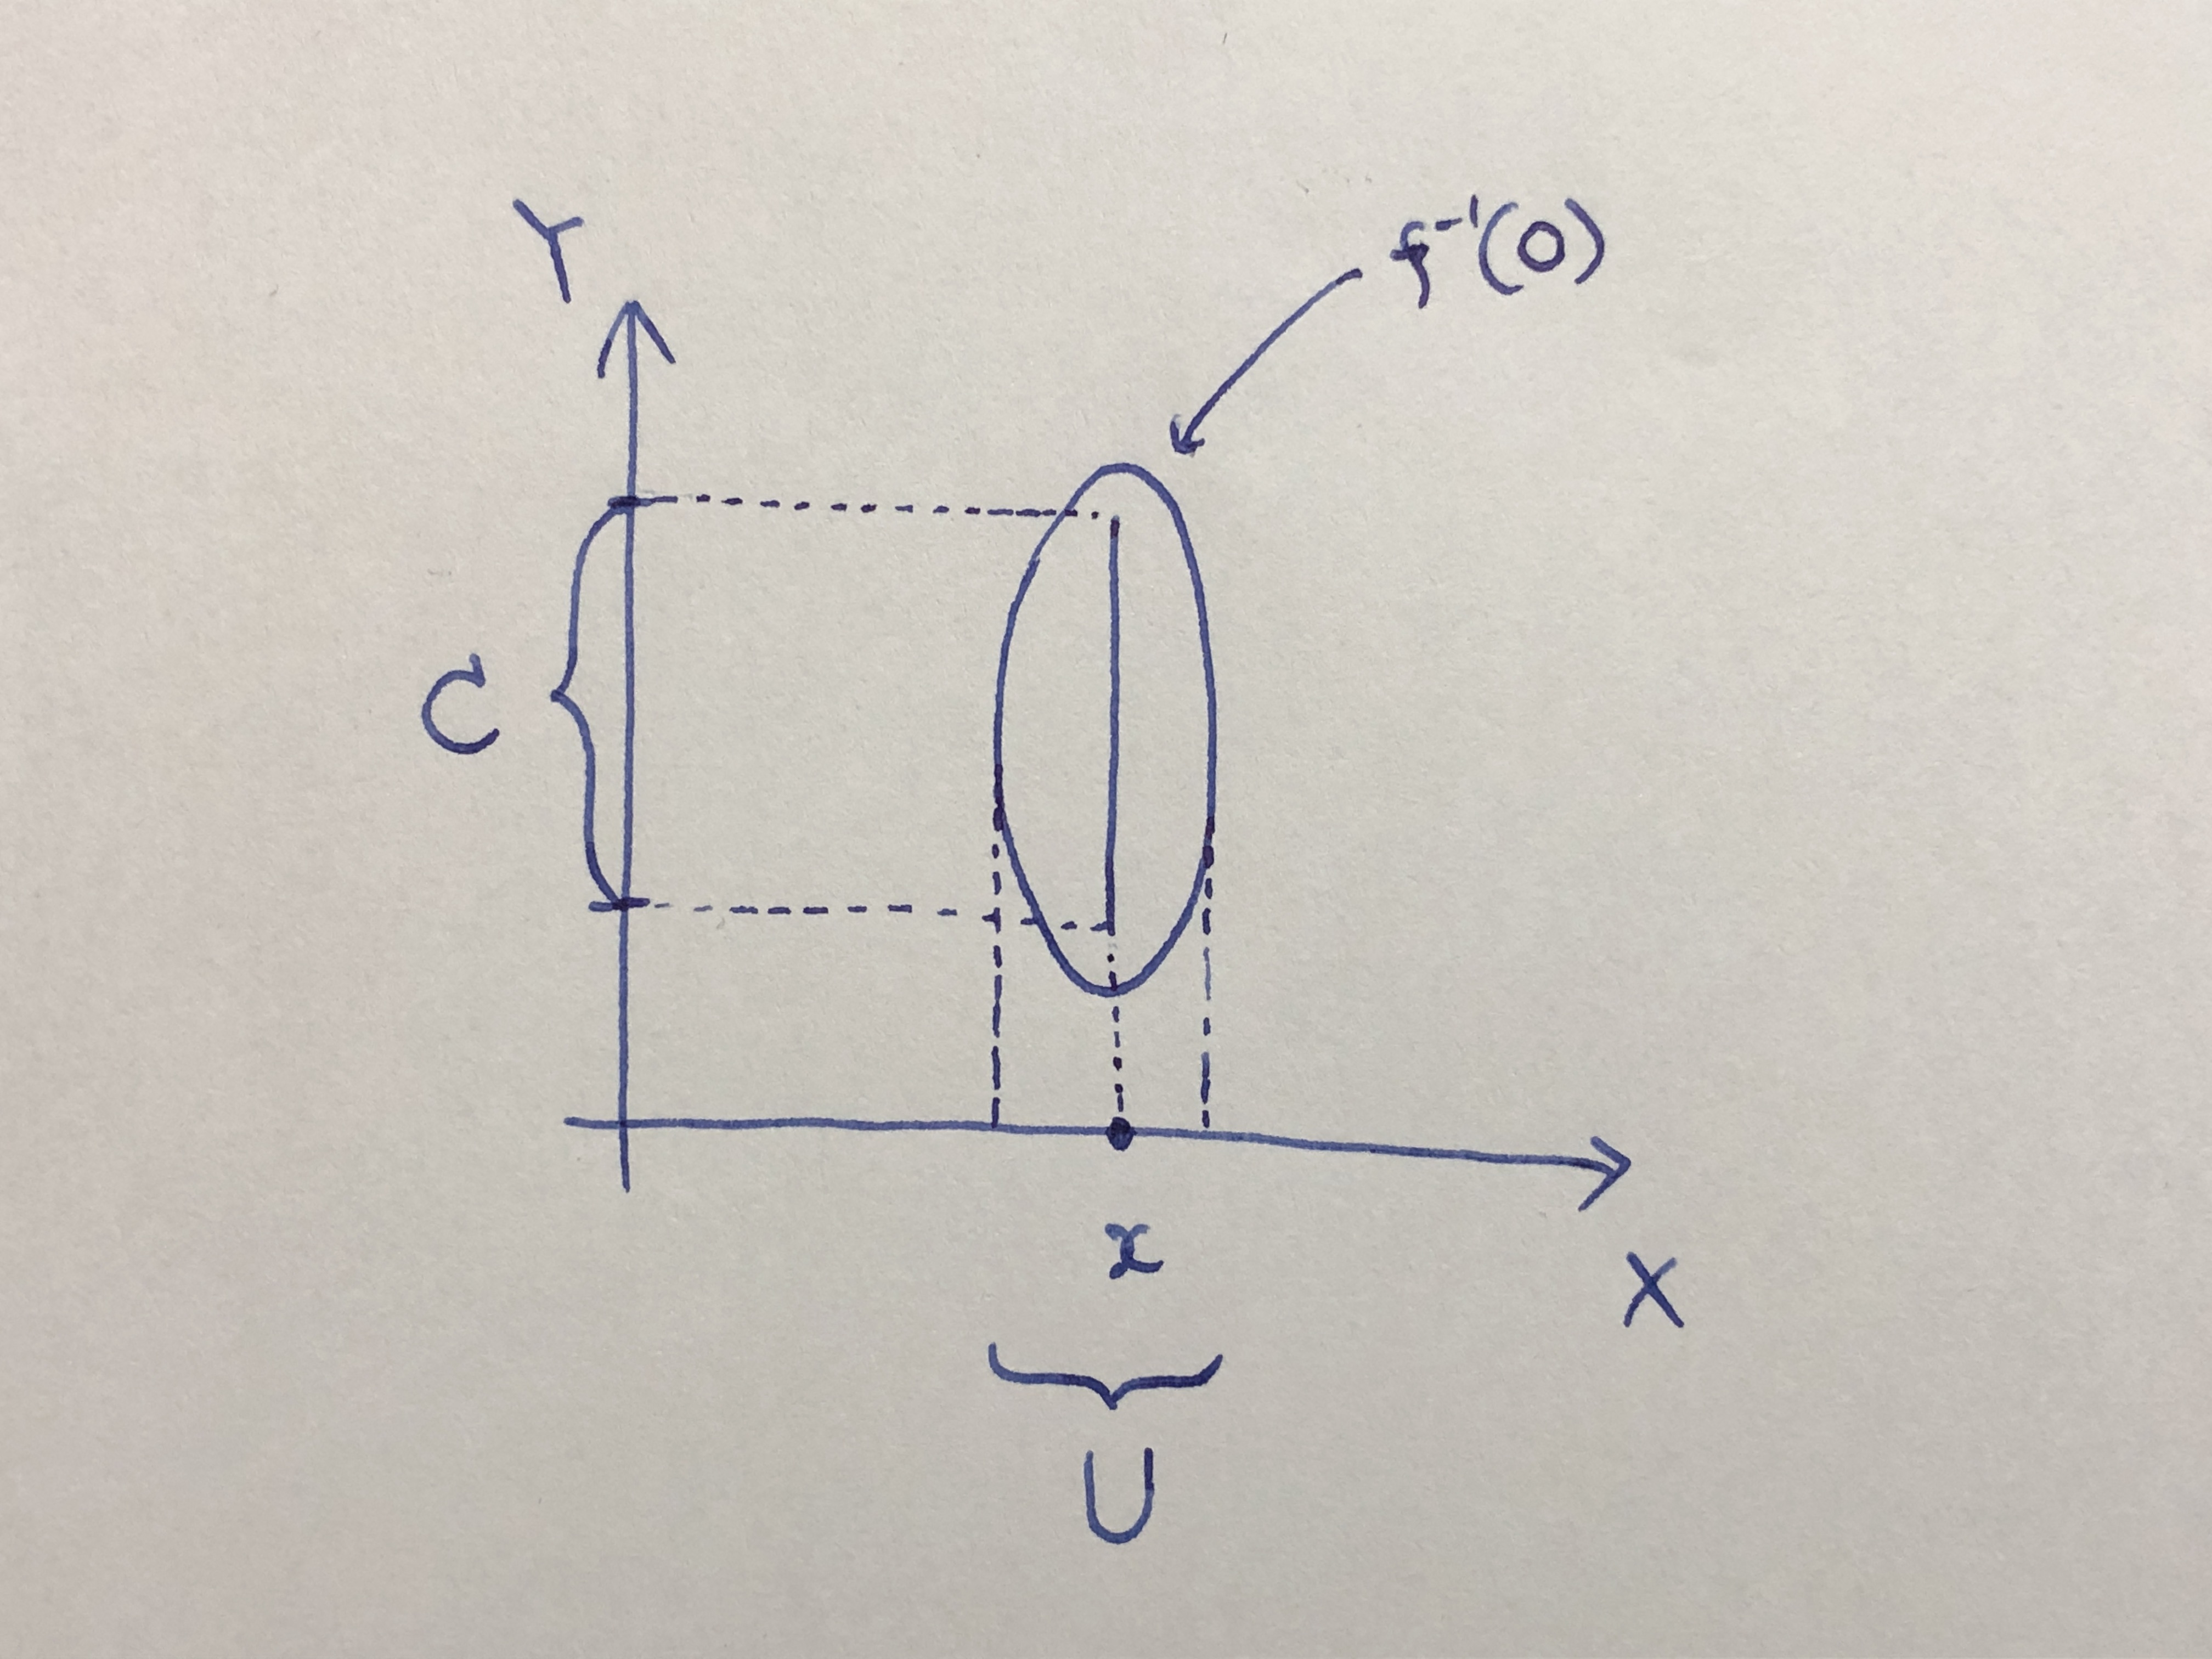 Y
f⁻¹(O)
C
x
X
U